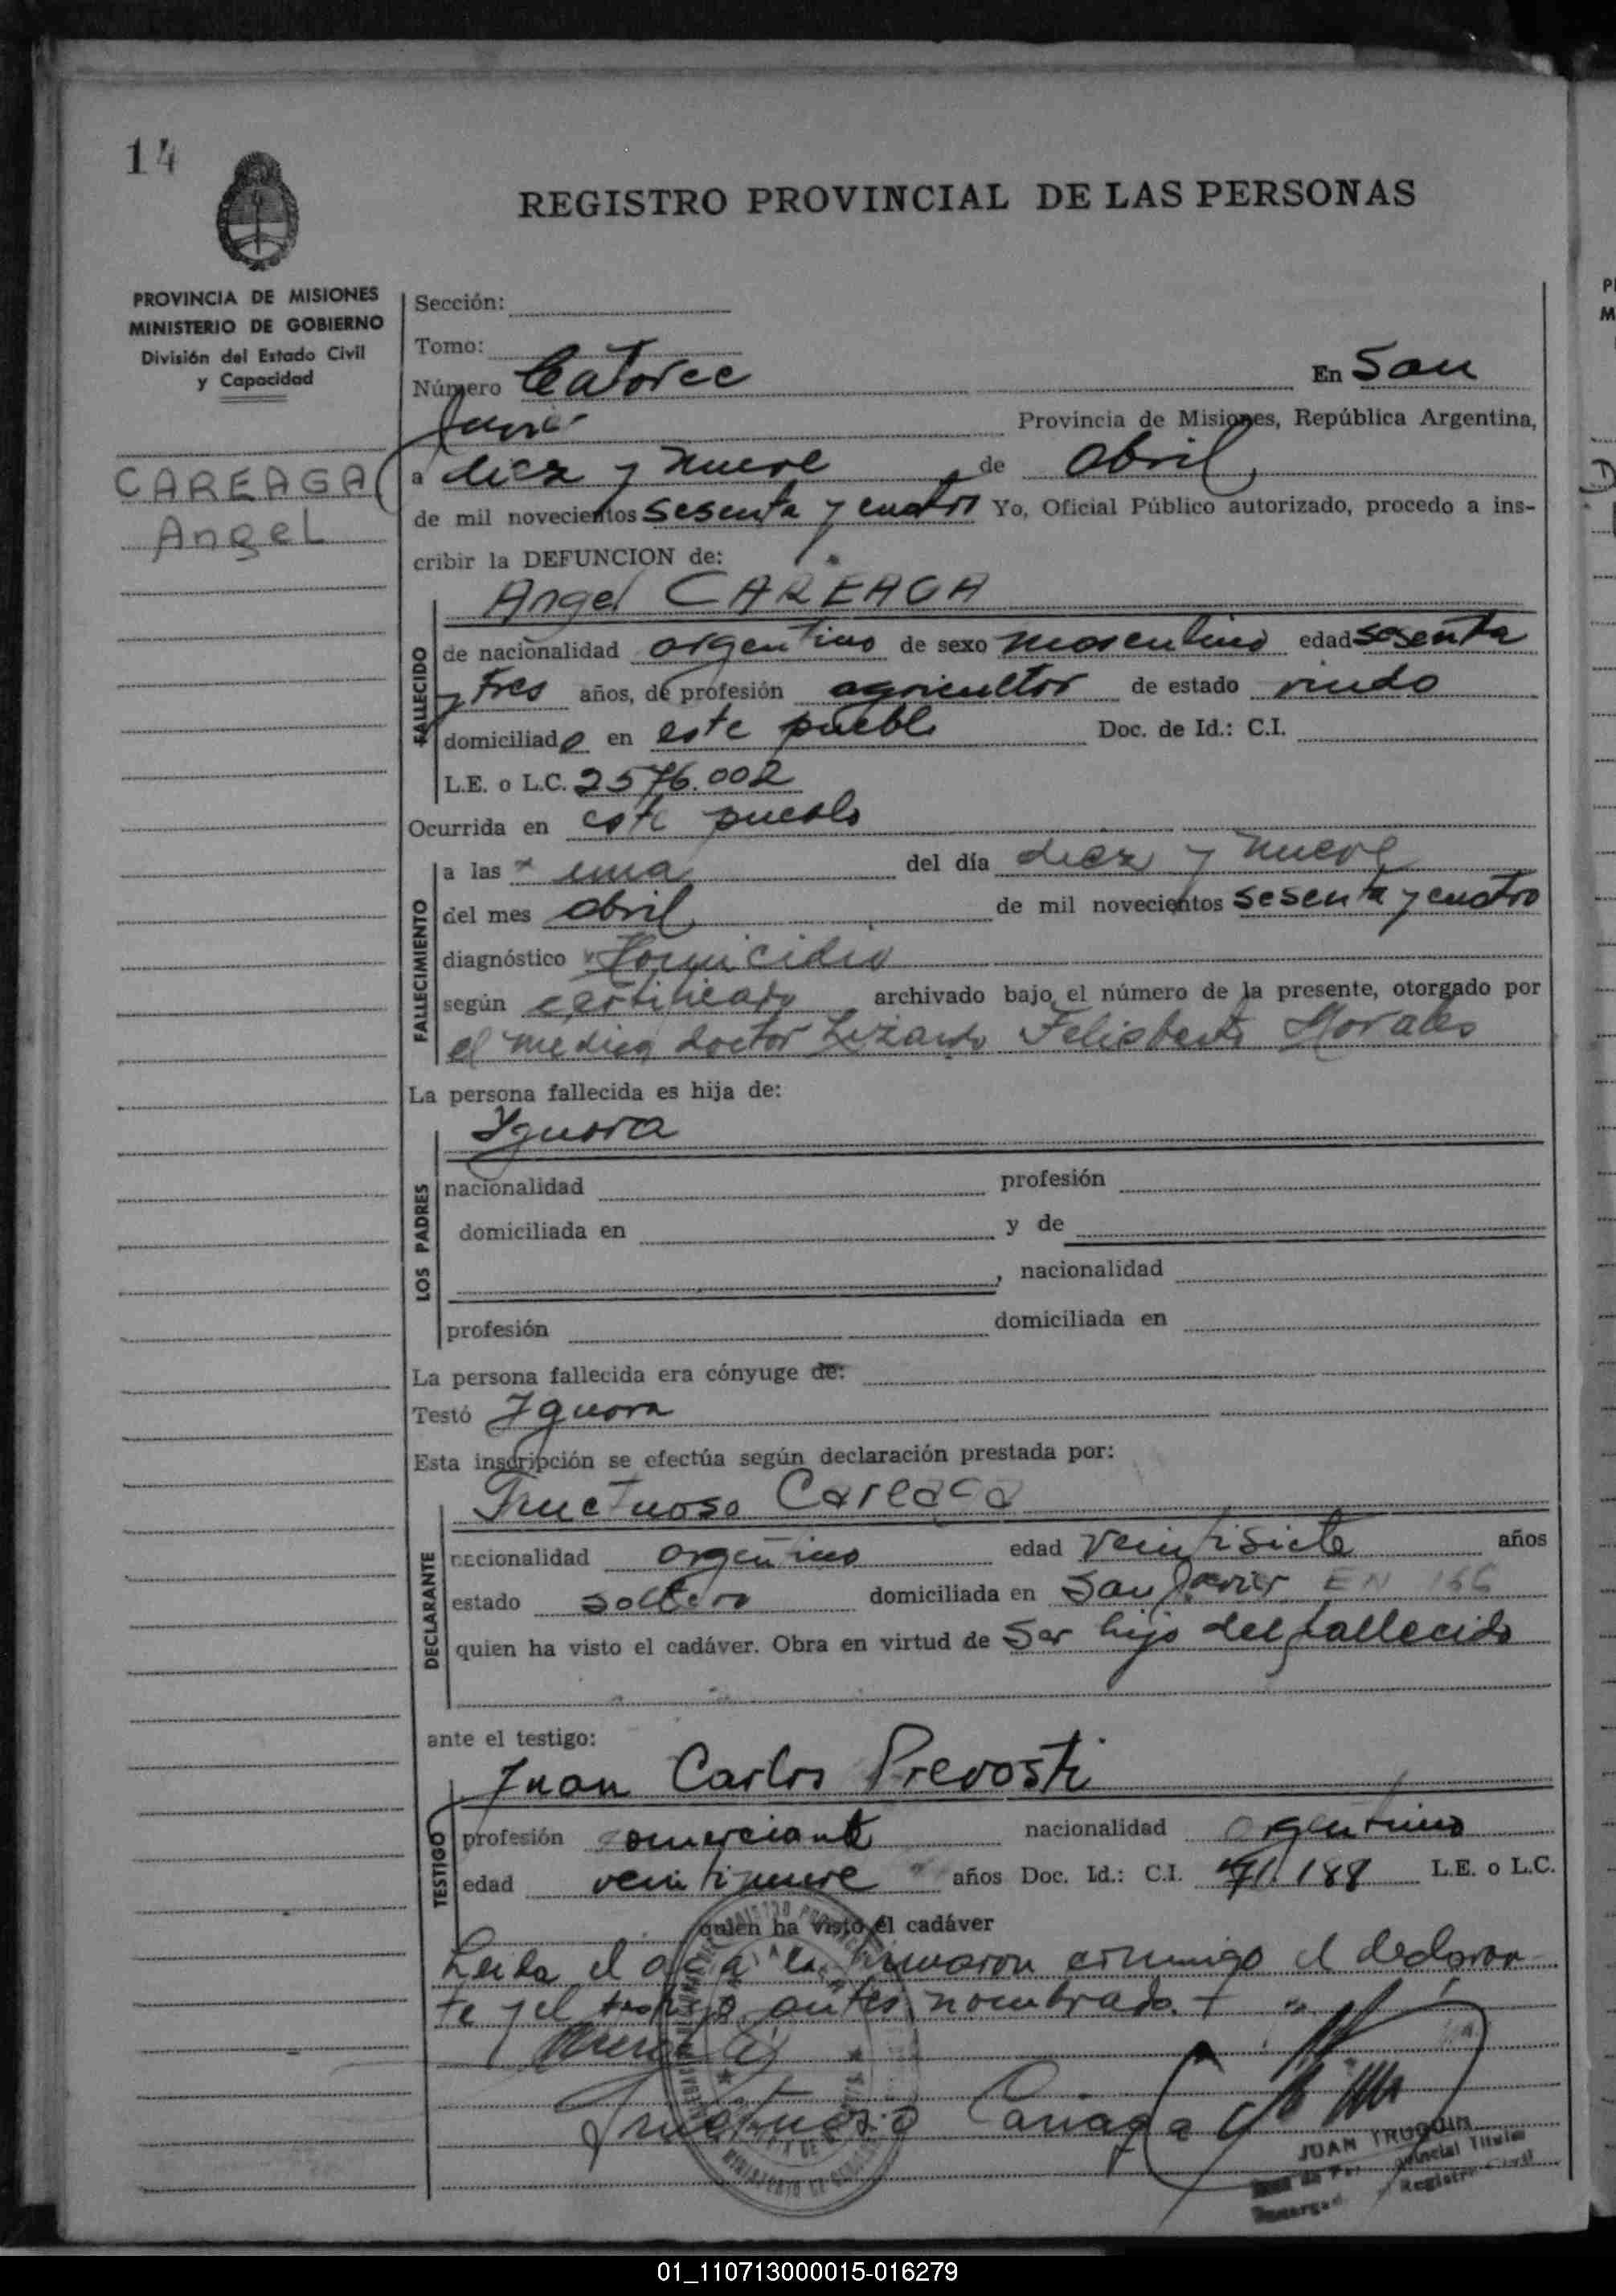 14
REGISTRO PROVINCIAL DE LAS PERSONAS
PROVINCIA DE MISIONES
MINISTERIO DE GOBIERNO
División del Estado Civil
y Capacidad
CAREAGA
Angel
Sección:
Tomo:
Número Catorce En San
Javier Provincia de Misiones, República Argentina,
a diez y nueve de abril
de mil novecientos sesenta y cuatro Yo, Oficial Público autorizado, procedo a ins-
cribir la DEFUNCION de:
Angel CAREAGA
FALLECIDO
de nacionalidad argentino de sexo masculino edad sesenta
y tres años, de profesión agricultor de estado viudo
domiciliado en este pueblo Doc. de Id.: C.I.
L.E. o L.C. 2576.002
Ocurrida en este pueblo
FALLECIMIENTO
a las una del día diez y nueve
del mes abril de mil novecientos sesenta y cuatro
diagnóstico Homicidio
según certificado archivado bajo el número de la presente, otorgado por
el medico doctor Lizardo Felisberto Morales
La persona fallecida es hija de:
Ygnora
LOS PADRES
nacionalidad profesión
domiciliada en y de
, nacionalidad
profesión domiciliada en
La persona fallecida era cónyuge de:
Testó Ignora
Esta inscripción se efectúa según declaración prestada por:
Fructuoso Careaga
DECLARANTE
nacionalidad argentino edad veintisiete años
estado soltero domiciliada en San Javier EN 166
quien ha visto el cadáver. Obra en virtud de Ser hijo del fallecido
ante el testigo:
Juan Carlos Prevosti
TESTIGO
profesión comerciante nacionalidad argentino
edad veintinueve años Doc. Id.: C.I. 71.188 L.E. o L.C.
quien ha visto el cadáver
Leida el acta la firmaron conmigo el declaran
te y el testigo antes nombrado.
Fructuoso Cariaga
JUAN TRUQUIN
01_110713000015-016279